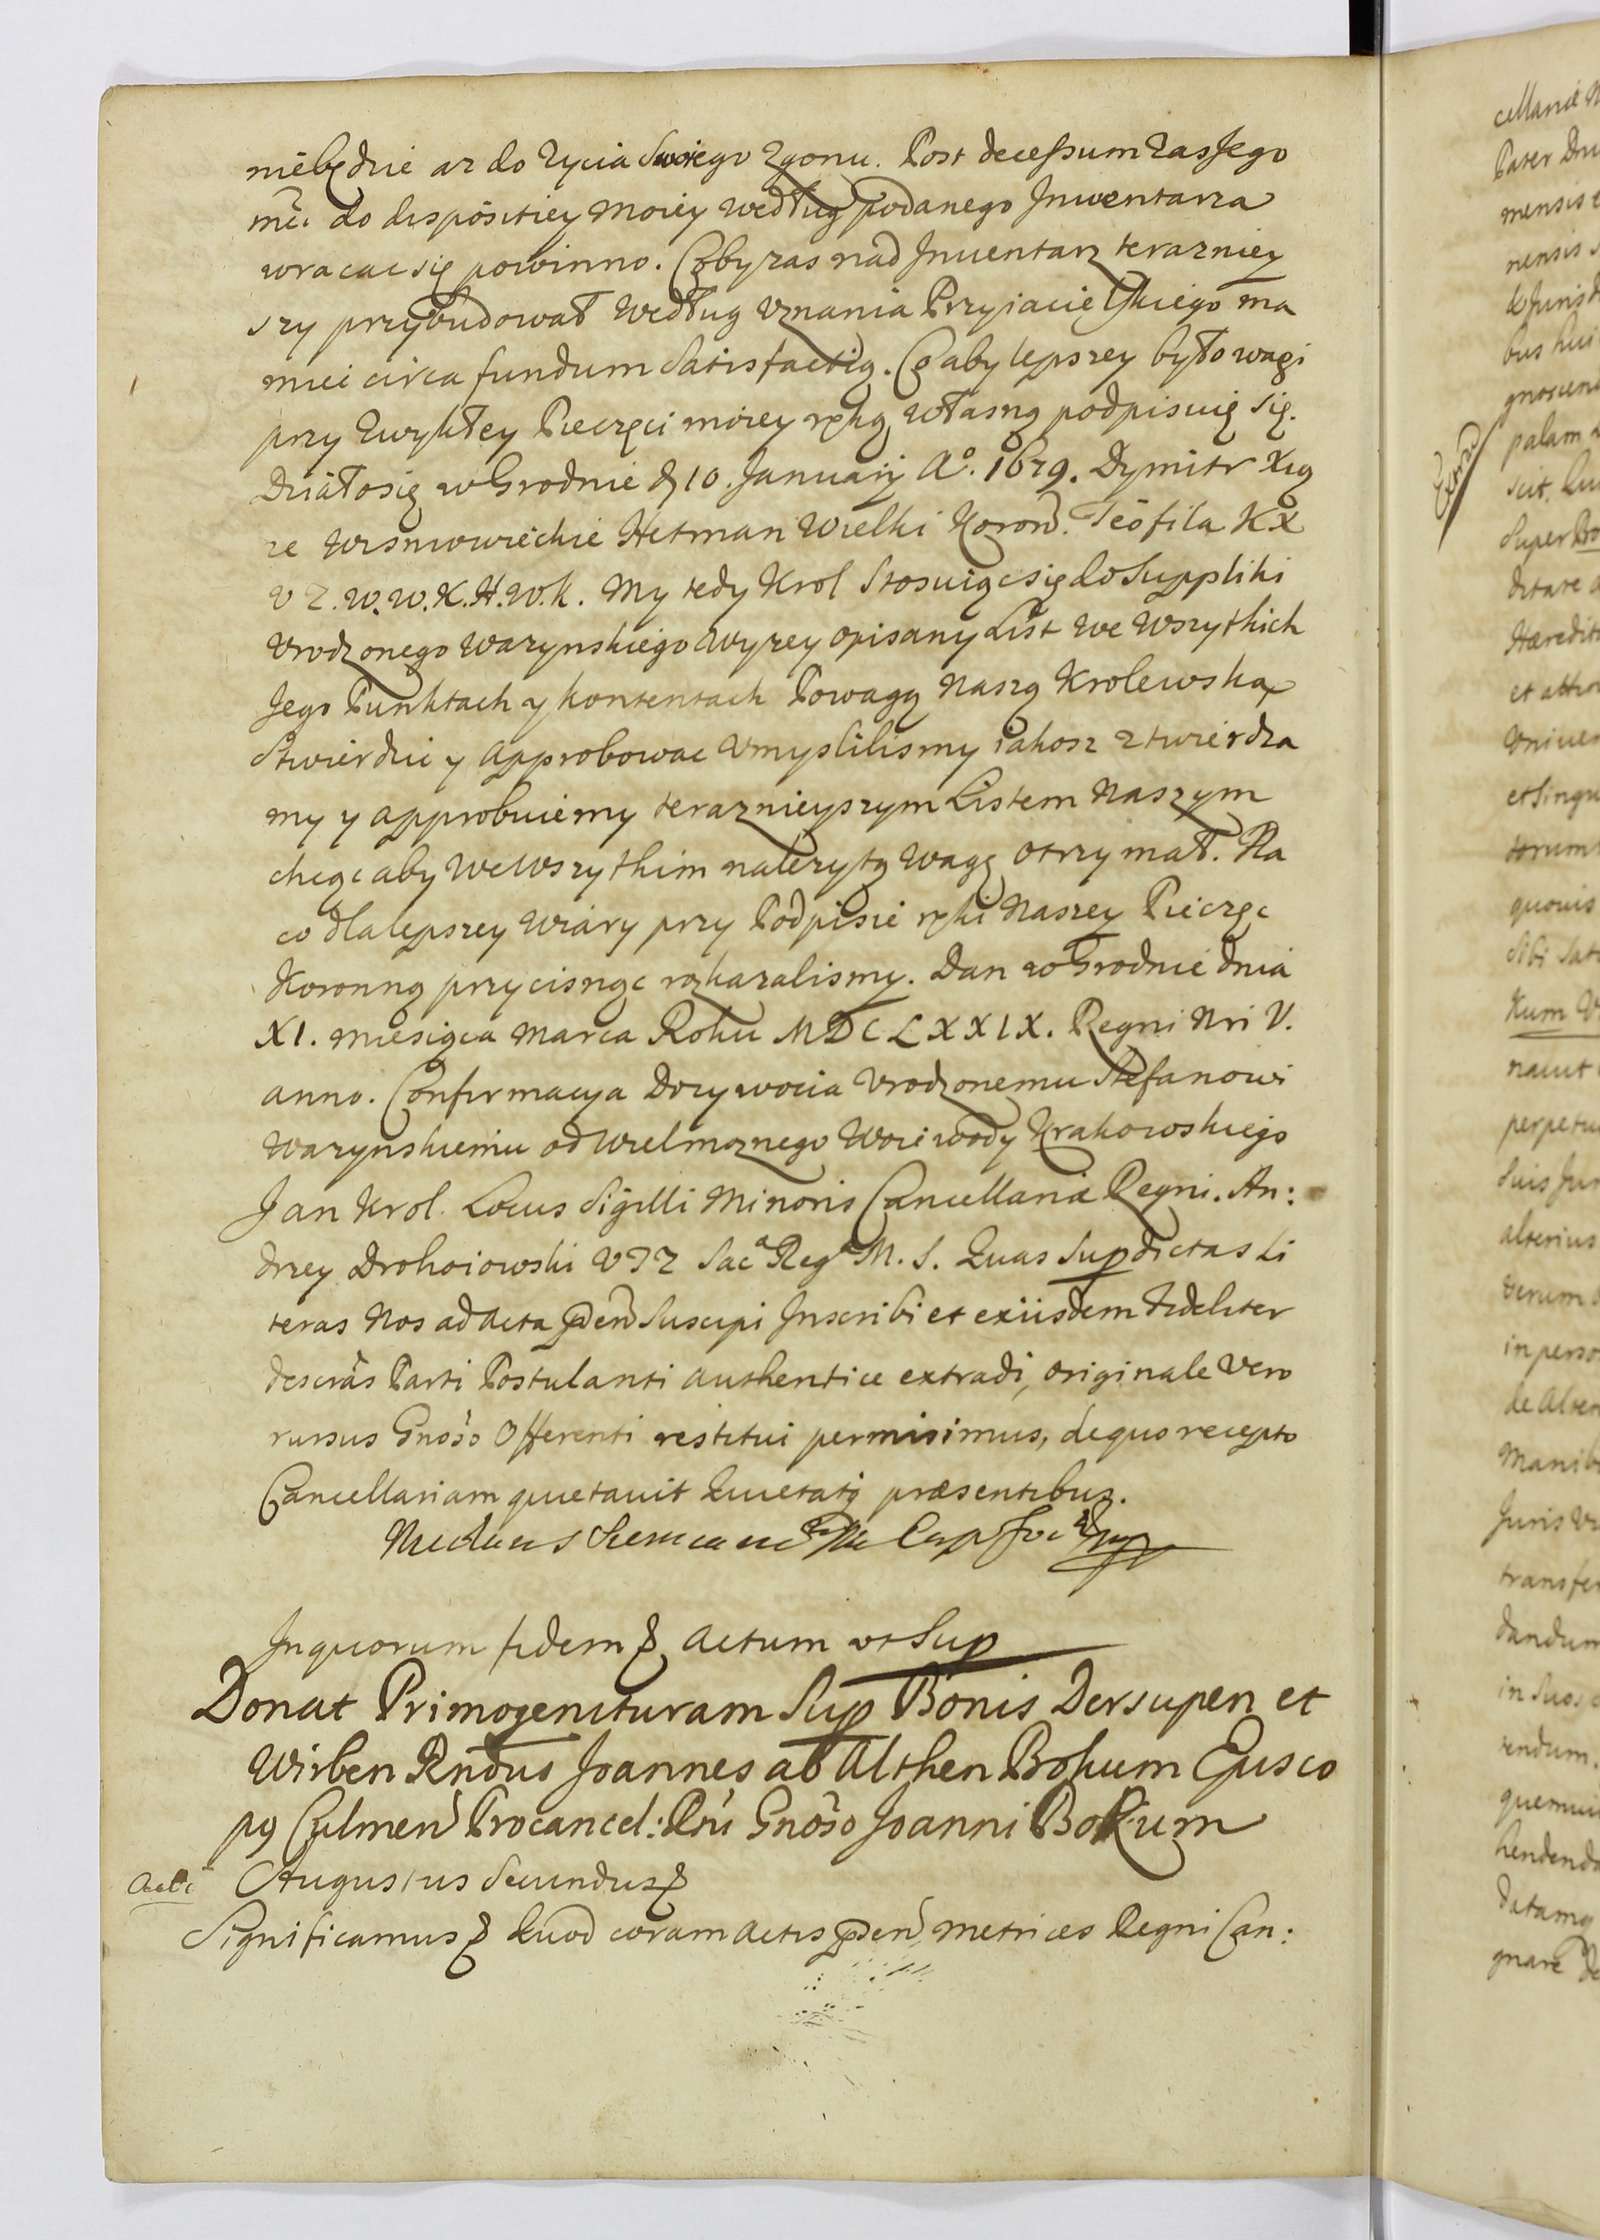 niebędzie az do zycia Swoiego zgonu. Post decessum zas Jego
mci do dispositiey moiey według podanego Inwentarza
wracac się powinno. Coby zas nad Inuentarz terazniey
szy przybudował według vznania Przyiacielskiego ma
miec circa fundum Satisfactią. Co aby lepszey było wagi
przy zwykłey Pieczęci moiey ręką własną podpisuię się.
Działosię w Grodnie d 10. January Aº. 1679. Dymitr Xią
ze Wisniowieckie Hetman Wielki Koron. Teofila KX
v Z. W. W. K. H. W. k. My tedy Krol Stosuiąc się do Suppliki
Vrodzonego Warynskiego Wyzey opisany List We Wszytkich
Jego Punktach y kontentach Powagą Naszą Krolewską
Stwierdzic y Approbowac Vmyslilismy iakosz ztwierdza
my y approbuiemy teraznieyszym Listem Naszym
chcąc aby WeWszytkim nalezytą wagę otrzymał. Na
co dla lepszey Wiary przy Podpisie ręki Naszey Pieczęc
Koronną przycisnąc rozkazalismy. Dan w Grodnie dnia
XI. miesiąca Marca Roku MDCLXXIX. Regni Nri V.
anno. Confirmacya Dozywocia Vrodzonemu Stefanowi
Warynskiemu od Wielmoznego Woiewody Krakowskiego
Jan Krol. Locus Sigilli Minoris Cancellariæ Regni. An:
drzey Drohoiowski VJZ Sacª Regª M. S. Quas Sup dictas Li
teras Nos ad Acta pden Suscipi Inscribi et exiisdem Fideliter
descrās Parti Postulanti authentice extradi, originale Vero
rursus Gnoso Offerenti restitui permisimus, dequo recepto
Cancellariam quietauit Quietatq præsentibus.
Inquorum fidem & Actum vt Sup
Donat Primogenituram Sup Bonis Dersupen et
Wirben Rndus Joannes ab Althen Bokum Episco
pg Culmen Procancel: Rni Gnoso Joanni Bokum
Augustus Secundus &
Significamus & Quod coram Actis pden Metrices Regni Can: